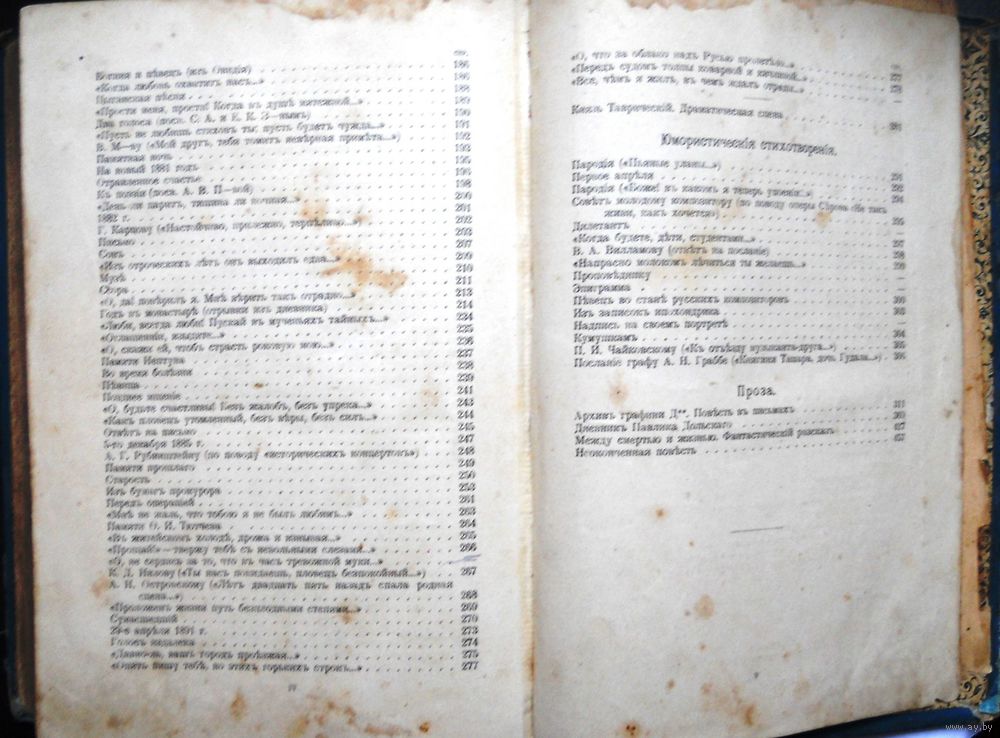 стр.
Богиня и пѣвецъ (изъ Овидія) 186
«Когда любовь охватитъ насъ...» 186
Цыганская пѣсня 188
«Прости меня, прости! Когда въ душѣ мятежной...» 189
Два голоса (посв. С. А. и Е. К. З—нымъ) 190
«Пусть не любишь стиховъ ты; пусть будетъ чужда...» 191
В. М—му («Мой другъ, тебя томитъ невѣрная примѣта...») 192
Памятная ночь 193
На новый 1881 годъ 195
Отравленное счастье 196
Къ поэзіи (посв. А. В. П—вой) 198
«День ли царитъ, тишина ли ночная...» 200
1882 г. 201
Г. Карцову («Настойчиво, прилежно, терпѣливо...») 202
Письмо 203
Сонъ 207
«Изъ отроческихъ лѣтъ онъ выходилъ едва...» 209
Музѣ 210
Ссора 211
«О, да! повѣрилъ я. Мнѣ вѣрить такъ отрадно...» 213
Годъ въ монастырѣ (отрывки изъ дневника) 214
«Люби, всегда люби! Пускай въ мученьяхъ тайныхъ...» 234
«Оглашеннiи, изыдите...» 235
«О, скажи ей, чтобъ страсть роковую мою...» 236
Памяти Нептуна 237
Во время болѣзни 238
Пѣвица 239
Позднее мщеніе 241
«О, будьте счастливы! Безъ жалобъ, безъ упрека...» 243
«Какъ пловецъ утомленный, безъ вѣры, безъ силъ...» 244
Отвѣтъ на письмо 245
5-го декабря 1885 г. 247
А. Г. Рубинштейну (по поводу «историческихъ концертовъ») 248
Памяти прошлаго 249
Старость 250
Изъ бумагъ прокурора 253
Передъ операціей 261
«Мнѣ не жаль, что тобою я не былъ любимъ...» 263
Памяти Ѳ. И. Тютчева 264
«Въ житейскомъ холодѣ, дрожа и изнывая...» 265
«Прощай!»—твержу тебѣ съ невольными слезами...» 266
«О, не сердись за то, что въ часъ тревожной муки...»
К. Д. Нилову («Ты насъ покидаешь, пловецъ безпокойный...») 267
А. Н. Островскому («Лѣтъ двадцать пять назадъ спала родная
сцена...») 268
«Проложенъ жизни путь безплодными степями...» 269
Сумасшедшій 270
29-е апрѣля 1891 г. 273
Голосъ издалека 274
«Давно-ль, вашъ городъ проѣзжая...» 275
«Опять пишу тебѣ, но этихъ горькихъ строкъ...» 277
«О, что за облако надъ Русью пролетѣло...»
«Передъ судомъ толпы коварной и кичливой...» 277
«Все, чѣмъ я жилъ, въ чемъ ждалъ отрады...» 278
—
Князь Таврическій. Драматическая сцена 281
Юмористическія стихотворенія.
Пародія («Пьяные уланы...»)
Первое апрѣля 291
Пародія («Боже! въ какомъ я теперь упоеніи...») 292
Совѣтъ молодому композитору (по поводу оперы Сѣрова «Не такъ 294
живи, какъ хочется»)
Дилетантъ 295
«Когда будете, дѣти, студентами...»
В. А. Вилламову (отвѣтъ на посланіе) 297
«Напрасно молокомъ лѣчиться ты желаешь...» 298
Проповѣднику 299
Эпиграмма
Пѣвецъ во станѣ русскихъ композиторовъ
Изъ записокъ ипохондрика 300
Надпись на своемъ портретѣ 303
Кумушкамъ —
П. И. Чайковскому («Къ отъѣзду музыканта-друга...») 304
Посланіе графу А. Н. Граббе («Княгиня Тамара, дочь Гудала...») 305
Проза.
Архивъ графини Д**. Повѣсть въ письмахъ 311
Дневникъ Павлика Дольскаго
Между смертью и жизнью. Фантастическій разсказъ 427
Неоконченная повѣсть 457
IV
www.ay.by